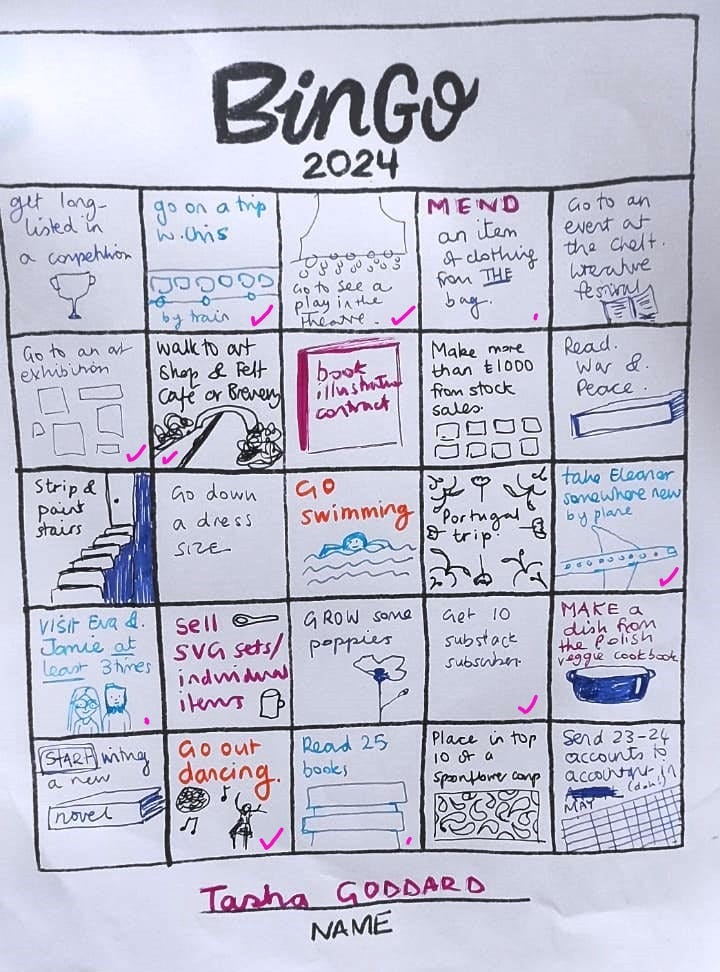 BinGo
2024
get long-
listed in
a competition
go on a trip
w. Chris
by train
Go to see a
play in the
theatre.
MEND
an item
of clothing
from THE
bag.
Go to an
event at
the Chelt.
literature
festival
Go to an art
exhibition
Walk to art
Shop & Felt
Café or Brewery
book
illustration
contract
Make more
than £1000
from stock
sales.
Read.
War &
Peace.
Strip &
paint
stairs
Go down
a dress
SIZE
GO
swimming
Portugal
trip.
take Eleanor
somewhere new
by plane
VISIT Eva &
Jamie at
least 3 times
Sell
SVG sets/
individual
items
GROW some
poppies
Get 10
substack
subscribers.
MAKE a
dish from
the Polish
veggie cookbook
START writing
a new
novel
Go out
dancing.
Read 25
books
Place in top
10 of a
spoonflower comp
Send 23-24
accounts to
accountant in
MAY
Tasha GODDARD
NAME